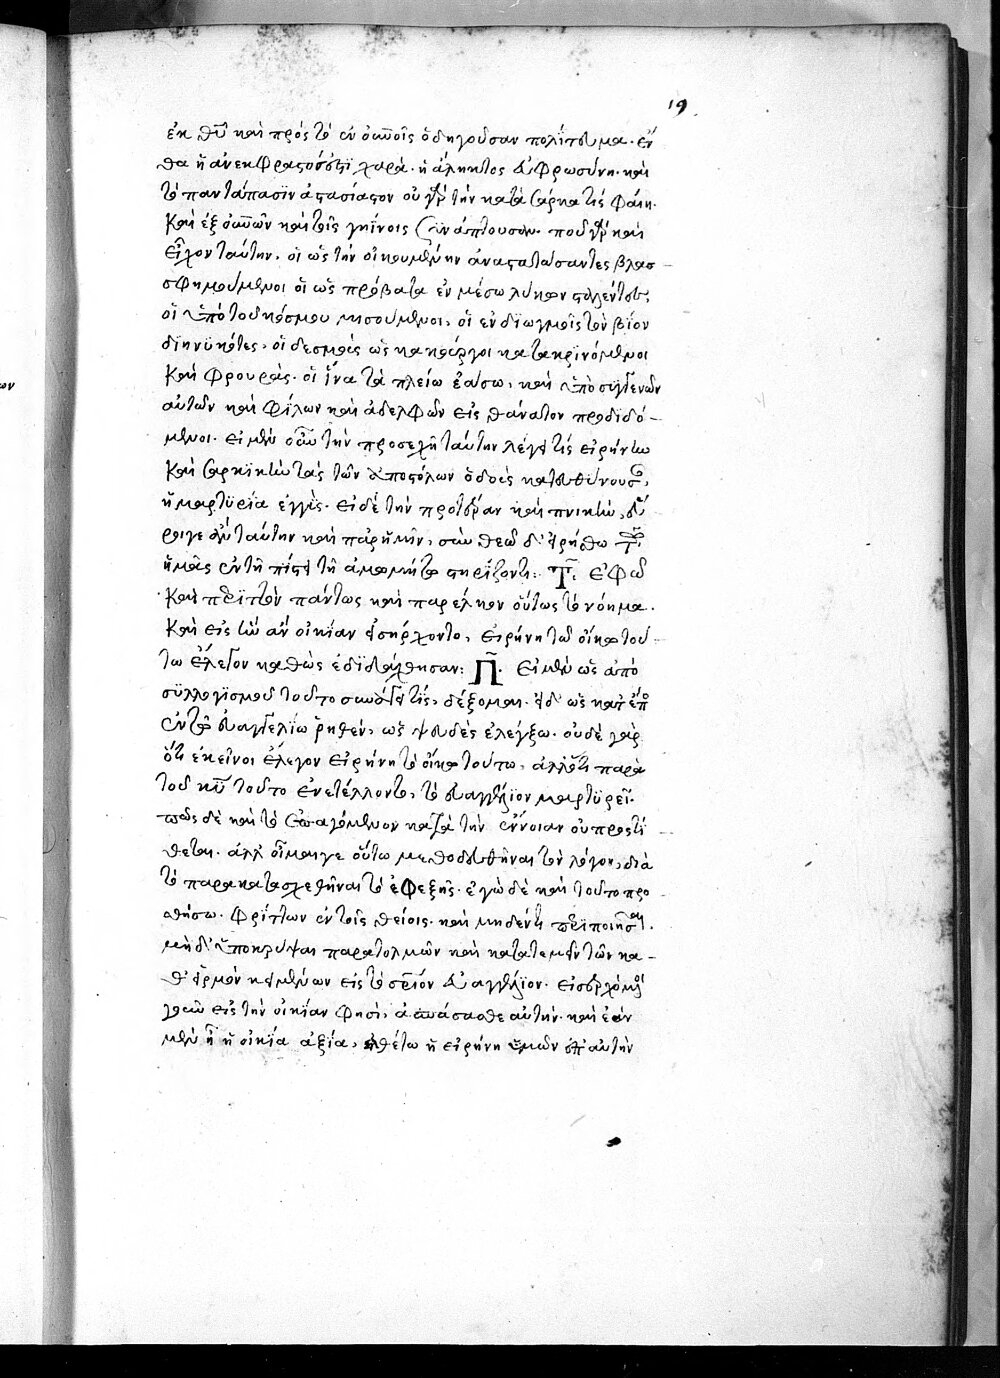 19
ἐκ θῦ καὶ πρὸς τὸ ἐν οὐνοῖς ὁδηγοῦσαν πολίτευμα. ἔν
θα ἡ ἀνεκφραστός ἐστι χαρὰ. ἡ ἄληκτος εὐφροσύνη. καὶ
τὸ παντάπασϊν ἀστασίαστον οὐ γὰρ τὴν κατὰ σάρκα τίς φαίη.
καὶ ἐξ οὐνῶν καὶ τοῖς γηΐνοις συνάπτουσαν. ποῦ γὰρ καὶ
εἶχον ταύτην. οἱ ὡς τὴν οἰκουμένην ἀναστατώσαντες βλασ
σφημούμενοι οἳ ὡς πρόβατα ἐν μέσω λύκων σταλέντες,
οἳ ὑπὸ τοῦ κόσμου μισούμενοι, οἳ ἐν δϊωγμοῖς τὸν βίον
διηνϋκότες, οἱ δεσμοὺς ὡς κακοῦργοι κατακρινόμενοι
καὶ φρουρὰς. οἳ ἵνα τὰ πλείω ἐάσω, καὶ ὑπὸ συγγενῶν
αὐτῶν καὶ φίλων καὶ ἀδελφῶν εἰς θάνατον προδιδό
μενοι. εἰ μὲν οὖν τὴν προσεχῆ ταύτην λέγει τίς εἰρήνην
καὶ σαρκϊκὴν τὰς τῶν ἀποστόλων ὁδοὺς κατευθύνουσαν,
ἡ μαρτϋρία ἐγγὺς. εἰ δὲ τὴν προτέραν καὶ πνικὴν, εὕ
ροιγε ἂν ταύτην καὶ παρ' ἡμῖν, σὺν θεῶ δ' εἰρήσθω
ἡμᾶς ἐν τῆ πίστει τῆ ἀμωμήτω στηρίζοντι: Τ: ἐφῶ
καὶ περιττὸν πάντως καὶ παρέλκον οὕτως τὸ νόημα.
καὶ εἰς ἣν ἂν οἰκίαν εἰσήρχοντο, εἰρήνη τῶ οἴκω τού
τω ἔλεγον καθὼς ἐδιδάχθησαν: Π. Εἰ μὲν ὡς ἀπὸ
συλλογϊσμοῦ τοῦτο συνάγει τίς, δέξομαι. εἰ δ' ὡς κατ' ἔπος
ἐν τῶ εὐαγγελίω ῥηθὲν, ὡς ψευδὲς ἐλέγξω. οὐδὲ γὰρ
ὅτι ἐκεῖνοι ἔλεγον εἰρήνη τῶ οἴκω τούτω, ἀλλ' ὅτι παρὰ
τοῦ κυ τοῦτο ἐνετέλλοντο, τὸ εὐαγγέλϊον μαρτϋρεῖ.
πῶς δὲ καὶ τὸ ἐπαγόμενον κατὰ τὴν ἔννοιαν οὐ προστί
θεται. ἀλλ' οἶμαιγε οὕτω μεθοδευθῆναι τὸν λόγον, διὰ
τὸ παρακατασχεθῆναι τὸ ἐφεξῆς. ἐγὼ δὲ καὶ τοῦτο προ
σθήσω. φρίττων ἐν τοῖς θείοις. καὶ μηδέν τι περϊποιῆσαι.
μὴ δ' ὑποκρυψαι παρατολμῶν καὶ κατατεμεῖν τῶν κα
θ' εἱρμὸν κειμένων εἰς τὸ σεπτὸν εὐαγγέλϊον. εἰσερχόμενοι
γοῦν εἰς τὴν οἰκίαν φησὶ, ἀσπάσασθε αὐτήν. καὶ ἐὰν
μὲν ἦ ἡ οἰκία ἀξία, ἐλθέτω ἡ εἰρήνη ὑμῶν ἐπ' αὐτὴν